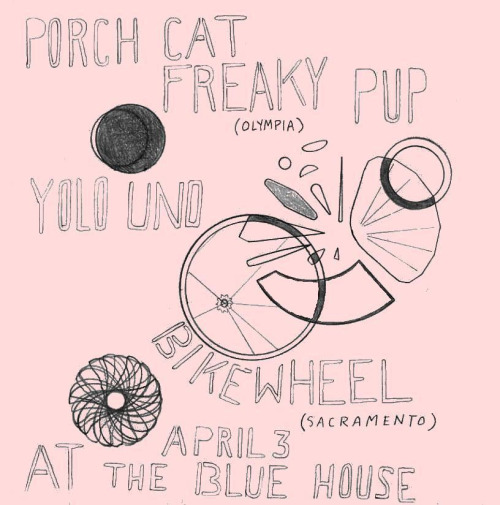 PORCH CAT
FREAKY PUP
(OLYMPIA)
YOLO UNO
BIKEWHEEL
(SACRAMENTO)
APRIL 3
AT THE BLUE HOUSE